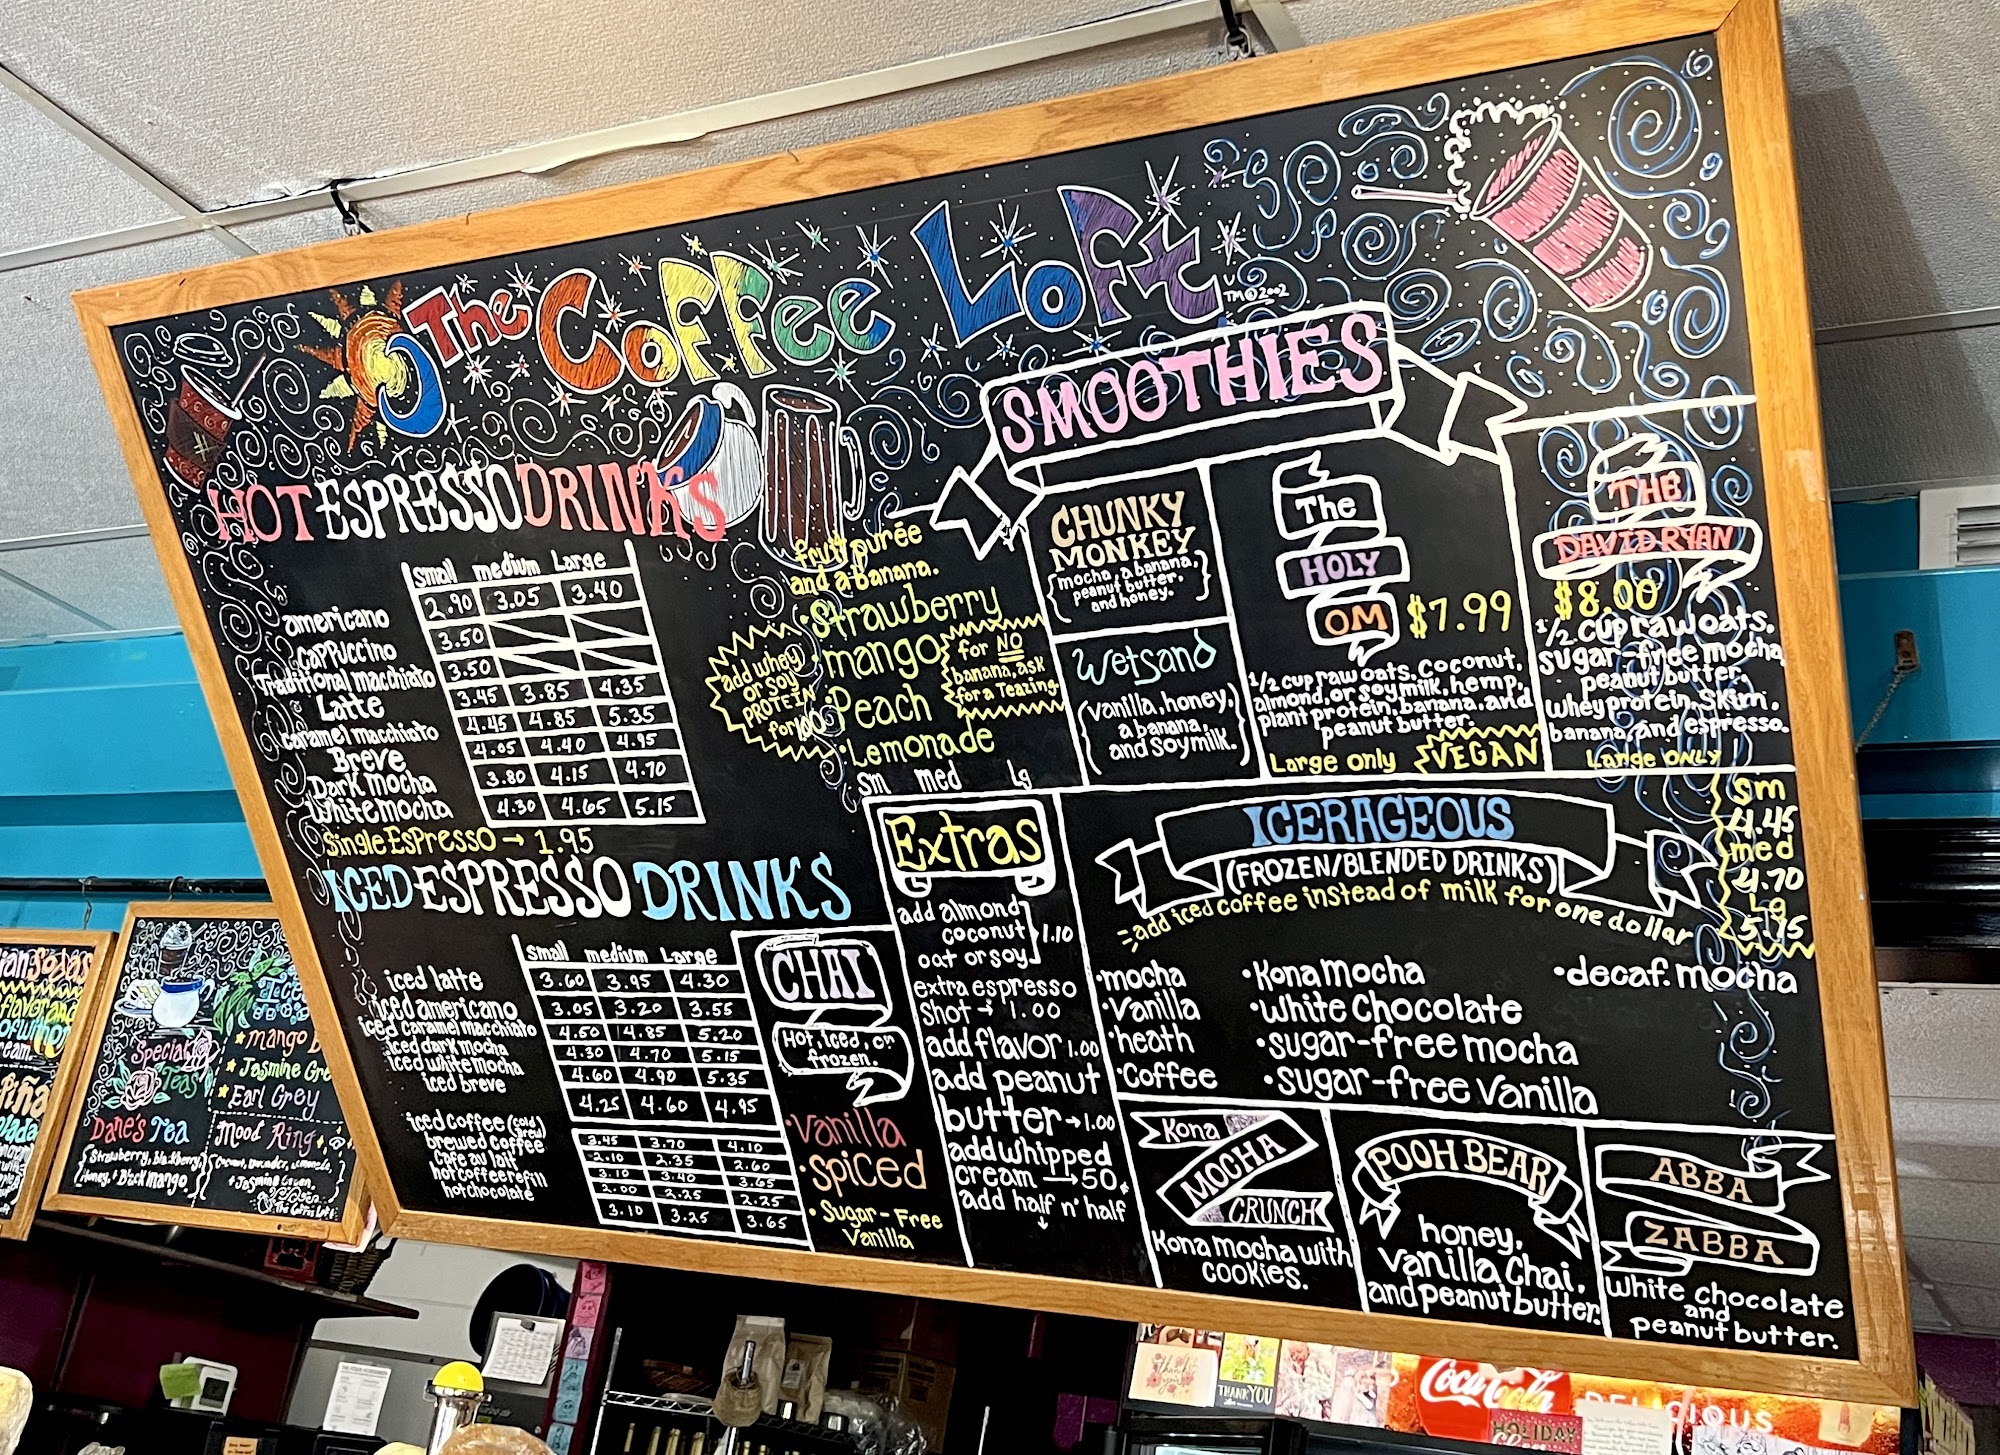 The Coffee Loft
TM © 2002
HOT ESPRESSO DRINKS
small medium Large
americano 2.90 3.05 3.40
cappuccino 3.50
Traditional macchiato 3.50
Latte 3.45 3.85 4.35
caramel macchiato 4.45 4.85 5.35
Breve 4.05 4.40 4.95
Dark mocha 3.80 4.15 4.70
White mocha 4.30 4.65 5.15
Single Espresso → 1.95
ICED ESPRESSO DRINKS
small medium Large
iced latte 3.60 3.95 4.30
iced americano 3.05 3.20 3.55
iced caramel macchiato 4.50 4.85 5.20
iced dark mocha 4.30 4.70 5.15
iced white mocha 4.60 4.90 5.35
iced breve 4.25 4.60 4.95
iced coffee (cold brew) 3.45 3.70 4.10
brewed coffee 2.10 2.35 2.60
cafe au lait 3.10 3.40 3.65
hot coffee refill 2.00 2.25 2.25
hot chocolate 3.10 3.25 3.65
CHAI
Hot, iced, or
frozen.
•Vanilla
•Spiced
•Sugar-Free
Vanilla
SMOOTHIES
fruit purée
and a banana.
•Strawberry
•mango
•Peach
•Lemonade
sm med lg
add whey
or soy
PROTEIN
for 1.00
for NO
banana, ask
for a Teazing.
CHUNKY
MONKEY
(mocha, a banana,
peanut butter,
and honey.)
Wetsand
(vanilla, honey,
a banana,
and soymilk.)
The
HOLY
OM $7.99
1/2 cup raw oats, coconut,
almond, or soymilk, hemp,
plant protein, banana, and
peanut butter.
Large only VEGAN
THE
DAVID RYAN
$8.00
1/2 cup raw oats,
sugar-free mocha,
peanut butter,
whey protein, skim,
banana, and espresso.
Large ONLY
Extras
add almond
coconut 1.10
oat or soy
extra espresso
shot → 1.00
add flavor 1.00
add peanut
butter → 1.00
add whipped
cream → 50¢
add half n' half
ICERAGEOUS
(FROZEN/BLENDED DRINKS)
add iced coffee instead of milk for one dollar
sm
4.45
med
4.70
Lg
5.15
•mocha
•Vanilla
•heath
•Coffee
•Kona Mocha
•White Chocolate
•sugar-free mocha
•sugar-free Vanilla
•decaf. mocha
Kona
MOCHA
CRUNCH
Kona mocha with
cookies.
POOH BEAR
honey,
Vanilla Chai,
and peanut butter.
ABBA
ZABBA
White chocolate
and
peanut butter.
Special
Teas
Dane's Tea
Strawberry, blackberry,
Honey, + Black mango
mango
Jasmine Gre
Earl Grey
Mood Ring
+ Jasmine Green
The Coffee Loft
Sodas
flavor and
Piña
Coca-Cola
DELICIOUS
THANK YOU
thank you
HOLIDAY